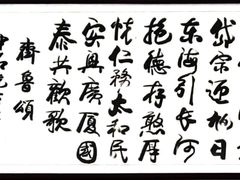 岱宗迎旭日
东海引长河
抱德存憨厚
怀仁務太和民
安興廣厦國
泰共歡歌
齊魯頌